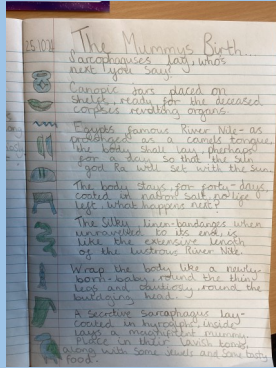 25.10.21
The Mummys Birth...
Sarcophaguses lay, who's
next you say?
Canopic Jars placed on
shelfs, ready for the deceased
corpses revolting organs.
Egypts famous River Nile - as
prolonged as a camels tongue,
the body shall stay, pherhaps
for a day so that the sun
god Ra will set with the sun.
The body stays for forty-days,
coated in natron salt, no life
left what happens next?
The silky linen-bandanges when
unravelled to its end, is
like the extensive length
of the lustrous River Nile.
Wrap the body like a newly-
born-baby, round the thin
legs and round the
head.
A Secretive Sarcophagus lay-
coated in inside
lays a mummy.
Place in their lavish tombs,
along with some jewels and
food.